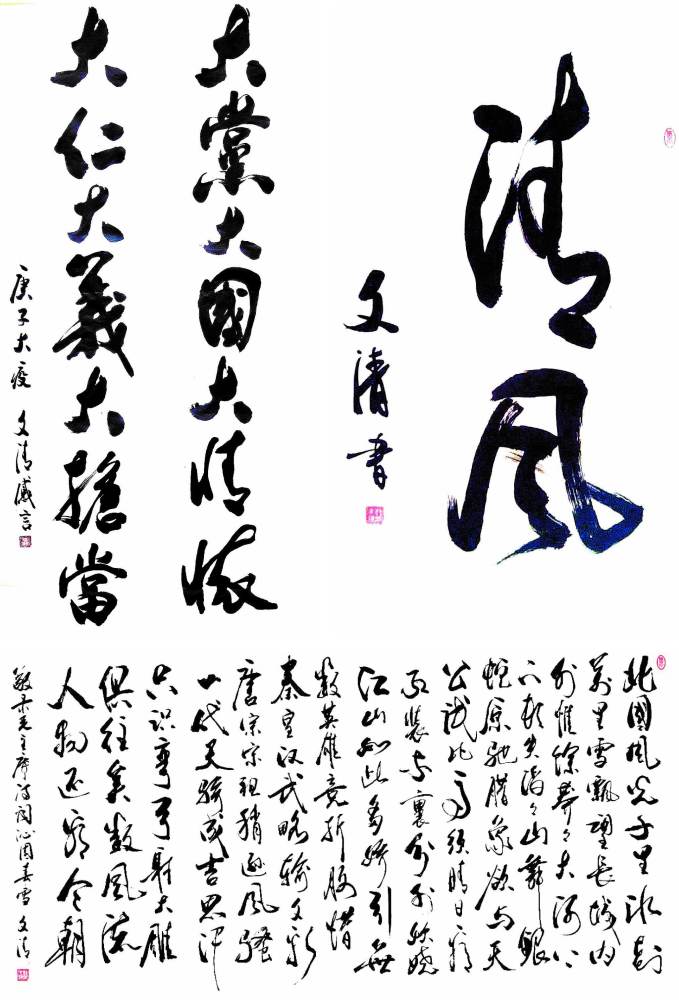 大黨大國大情懷
大仁大義大擔當
庚子大疫 文清感言
清风
文清書
北國風光千里冰封
萬里雪飄望長城内
外惟餘莽々大河上
下頓失滔々山舞銀
蛇原馳腊象欲与天
公試比高須晴日看
紅裝素裹分外妖嬈
江山如此多嬌引無
數英雄竞折腰惜
秦皇汉武略輸文彩
唐宗宋祖稍逊風騷
一代天骄成吉思汗
只识弯弓射大雕
俱往矣数風流
人物还看今朝
敬录毛主席诗词沁园春雪 文清